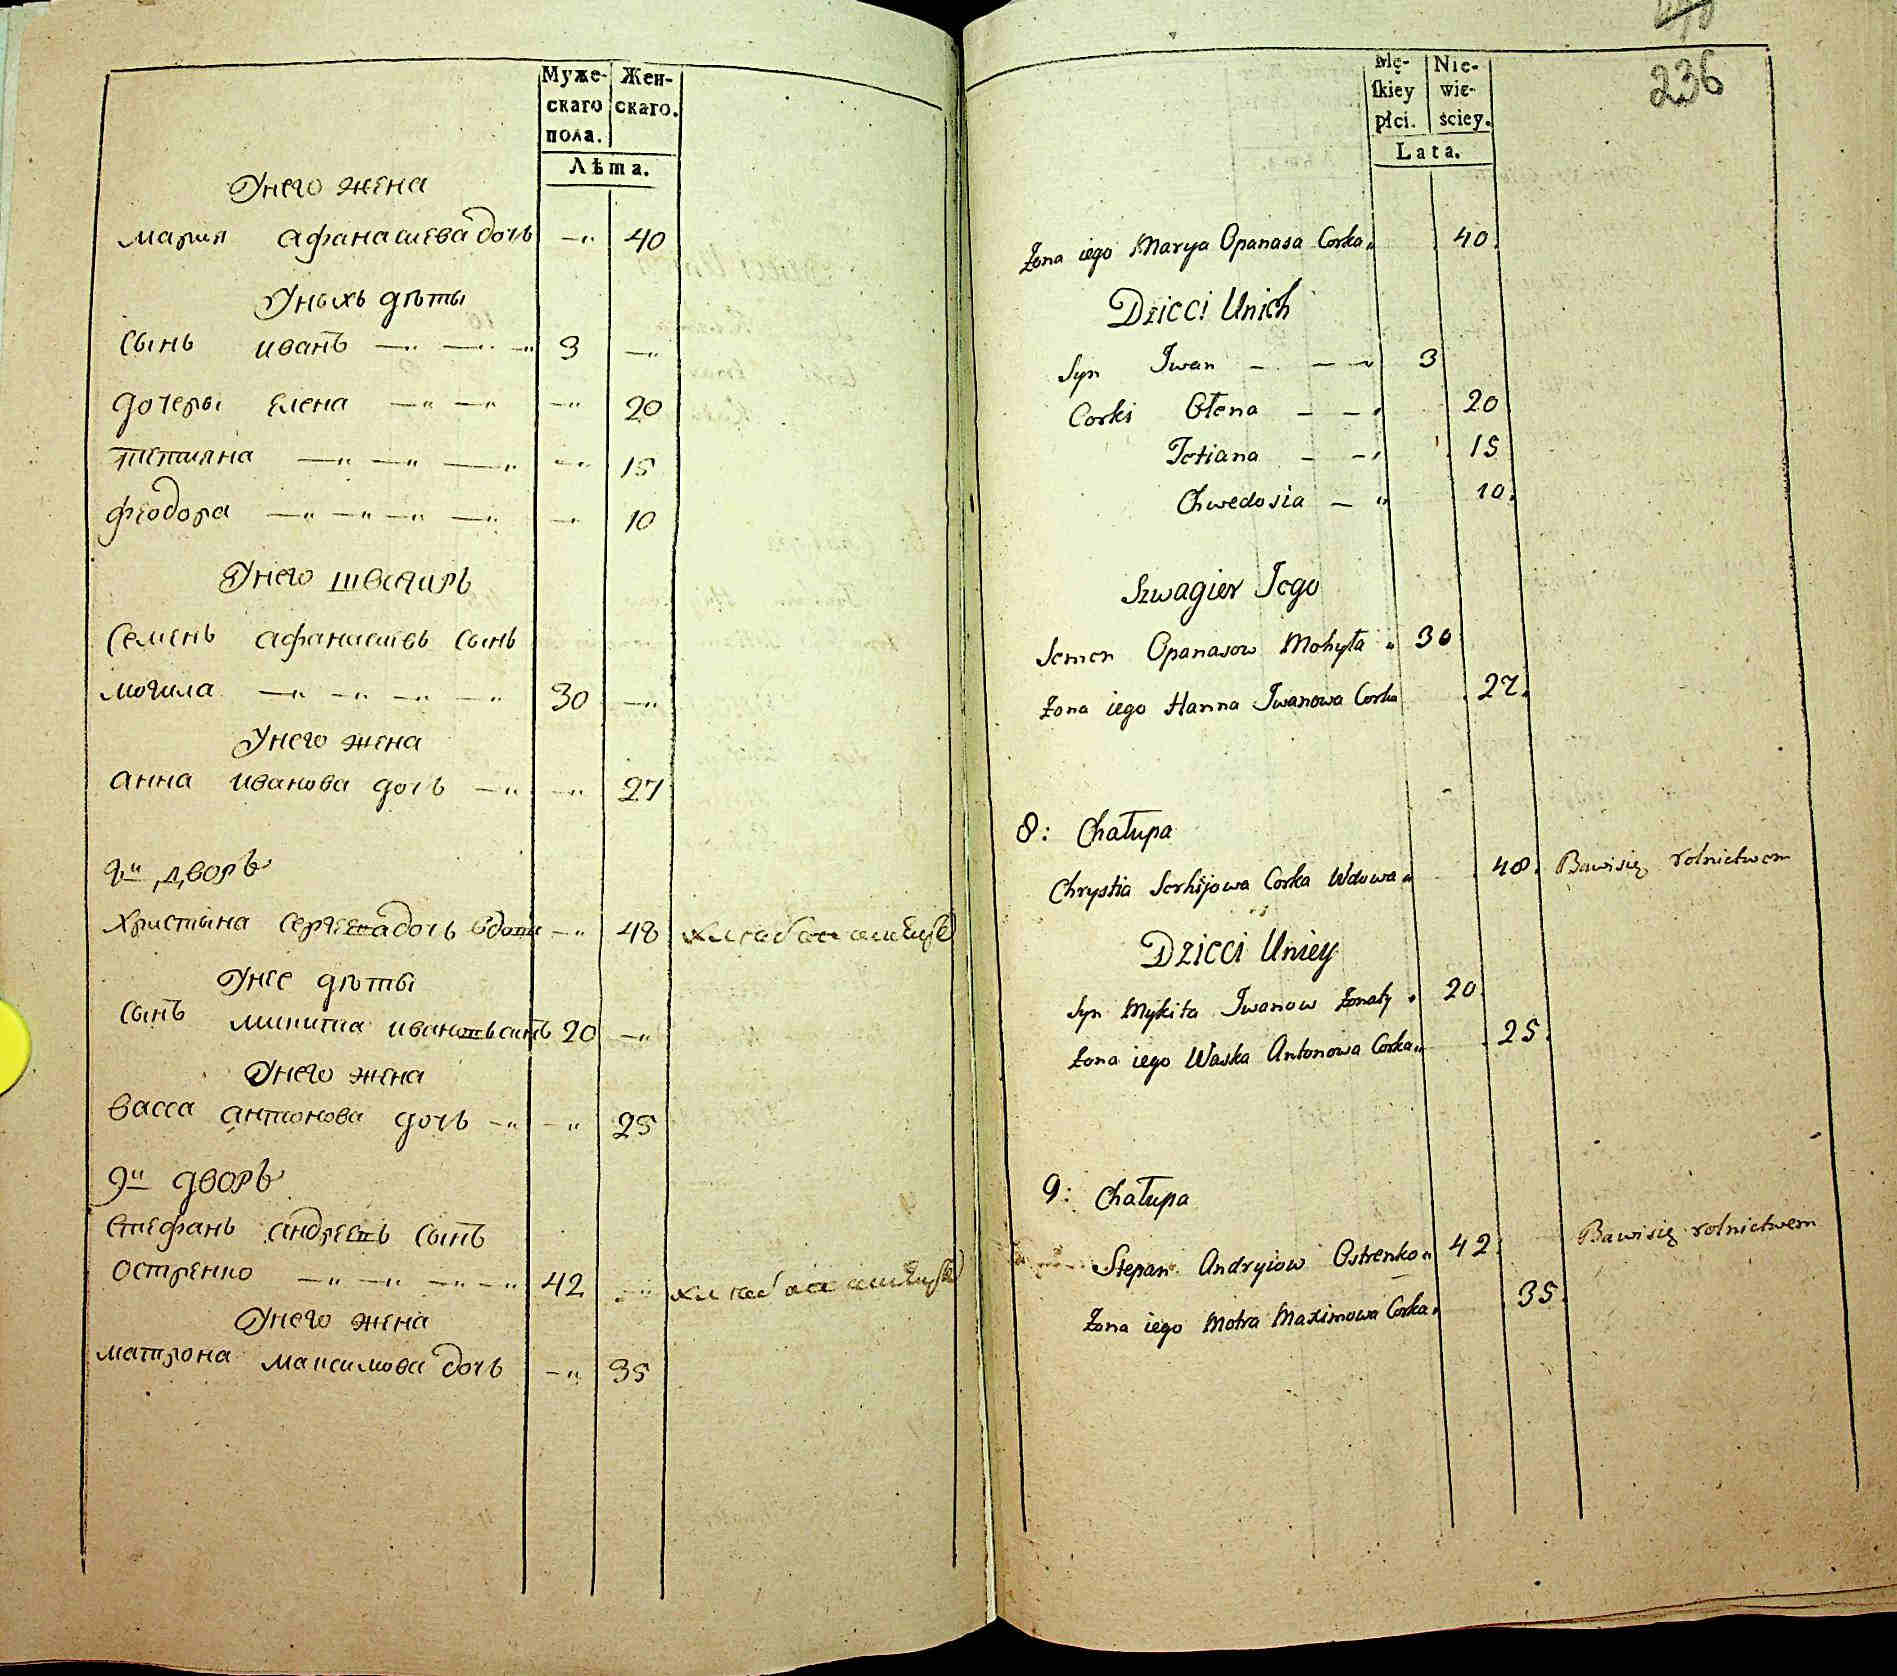 Муже- Жен-
скаго скаго.
пола.
Лѣта.
Унего жена
мария афанасиева дочь —„ 40
Унихъ дѣты
сынъ иванъ —„ —„ —„ 3 —„
дочеры Елена —„ —„ —„ 20
татияна —„ —„ —„ —„ 15
феодора —„ —„ —„ —„ —„ 10
Унего швагиръ
Семенъ афанасиевъ сынъ
могила —„ —„ —„ —„ 30 —„
Унего жена
анна иванова дочь —„ —„ 27
8й дворъ
христына сергеева дочь вдова —„ 48
Унее дѣты
сынъ микита ивановъ сынъ 20 —„
Унего жена
васса антонова дочь —„ —„ 25
9й дворъ
стефанъ андреевъ сынъ
остренко —„ —„ —„ —„ 42 —„
Унего жена
матрона максимова дочь —„ 35
236
Mę- Nie-
skiey wie-
płci. ściey.
Lata.
Żona iego Marya Opanasa Corka„ 40.
Dzieci Unich
Syn Iwan — — —„ 3
Corki Ołena — —„ 20
Tetiana — —„ 15
Chwedosia — „ 10.
Szwagier Iego
Semen Opanasow Mohyła „ 30
Żona iego Hanna Iwanowa Corka 27.
8: Chałupa
Chrystia Serhijowa Corka Wdowa„ 48. Bawisię rolnictwem
Dzieci Uniey
Syn Mykita Iwanow żonaty „ 20
Żona iego Waska Antonowa Corka„ 25.
9: Chałupa
Stepan Andryiow Ostrenko„ 42. Bawisię rolnictwem
Żona iego Motra Maximowa Corka„ 35.